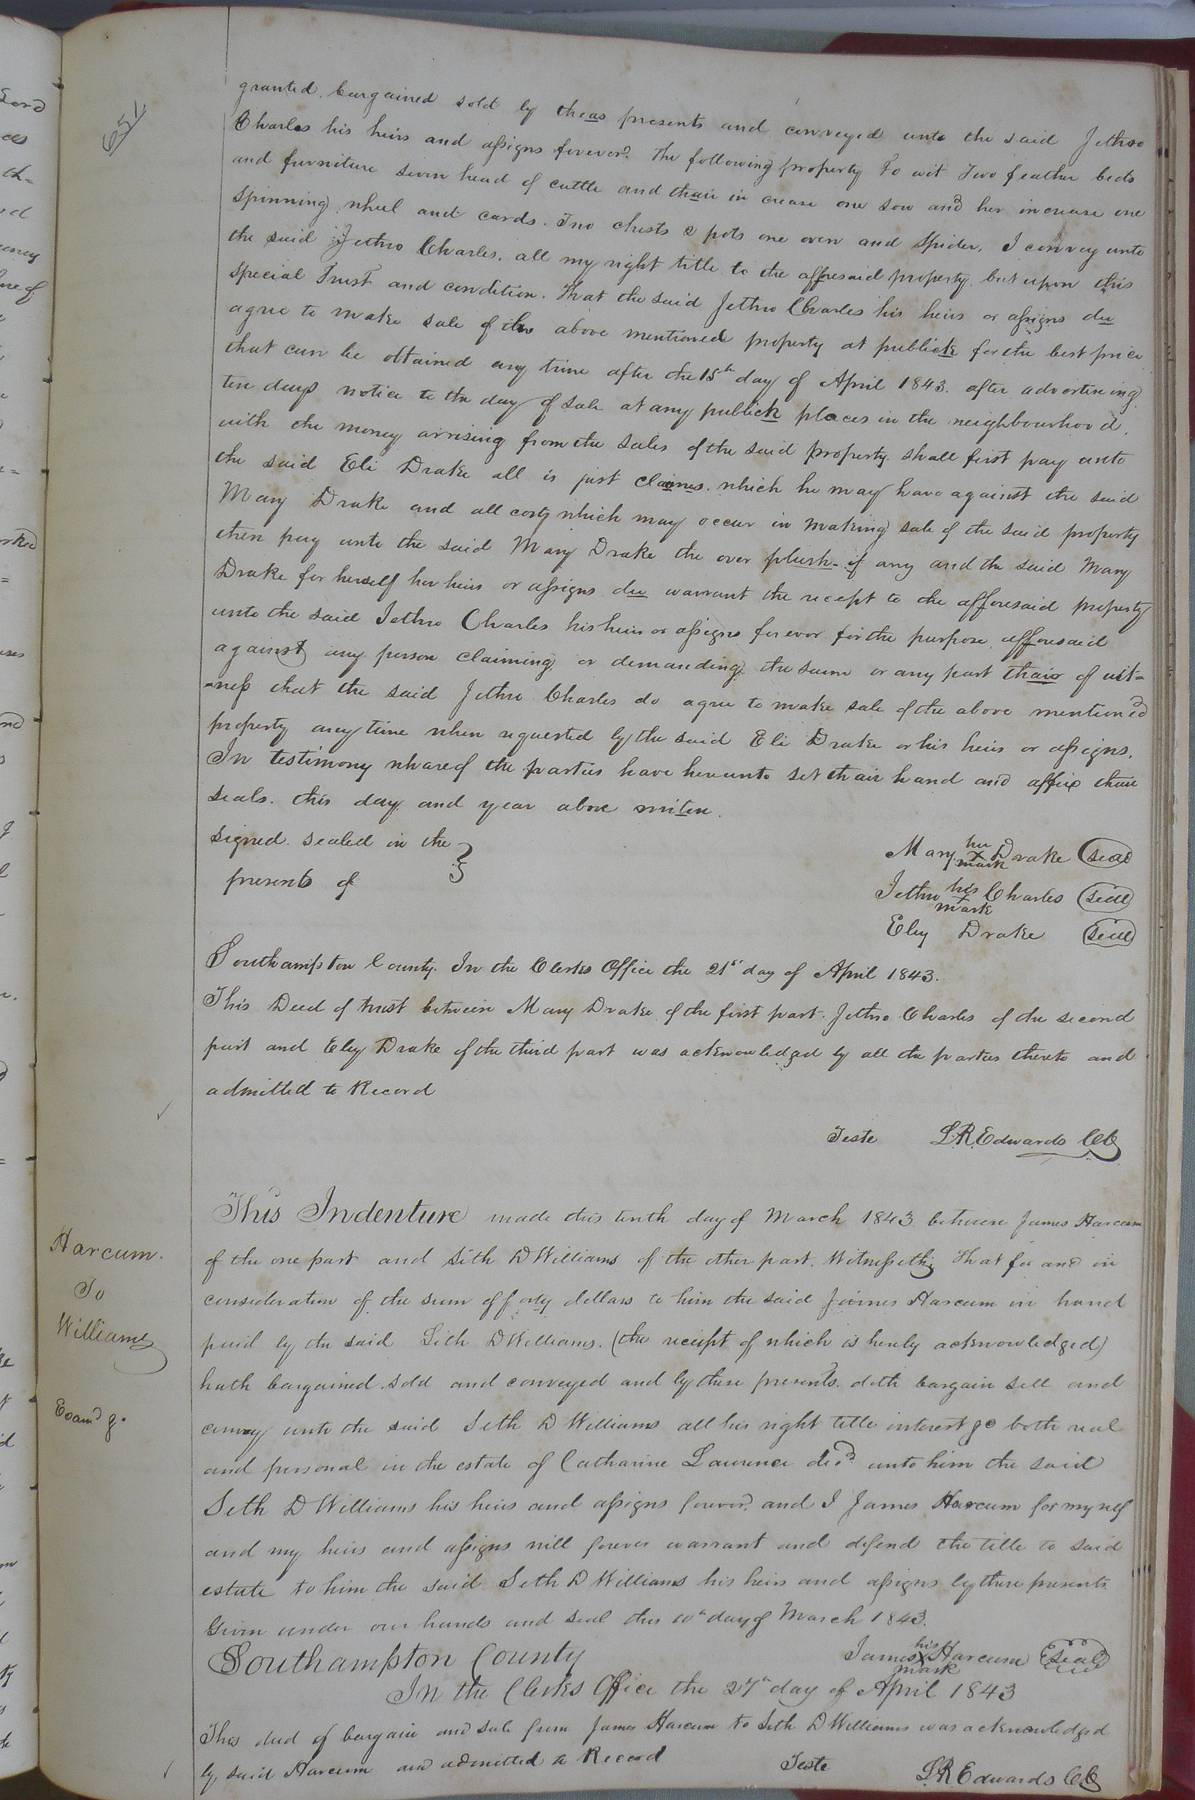 651
granted bargained sold by theas presents and conveyed unto the said Jethro
Charles his heirs and assigns forever. The following property To wit Two feather beds
and furniture seven head of cattle and thair in crease one sow and her increase one
spinning wheel and cards. Two chests 2 pots one oven and spider. I convey unto
the said Jethro Charles. all my right title to the afforesaid property. but upon this
special Trust and condition. That the said Jethro Charles his heirs or assigns du
agree to make sale of the above mentioned property at publick for the best price
that can be obtained any time after the 15th day of April 1843. after advertiseing
ten days notice to the day of sale at any publick places in the neighbourhood.
with the money arrising from the sales of the said property. shall first pay unto
the said Eli Drake all is just claimes. which he may have against the said
Mary Drake and all costs which may occur in making sale of the said property
then pay unto the said Mary Drake the over plush if any and the said Mary
Drake for herself her heirs or assigns du warrant the recept to the afforesaid property
unto the said Jethro Charles his heirs or assigns forever for the purpose afforesaid
against any person claiming or demanding the same or any part thair of wit=
=ness that the said Jethro Charles do agree to make sale of the above mentioned
property any time when requested by the said Eli Drake or his heirs or assigns.
In testimony whareof the parties have hereunto set thair hand and affix thair
seals. this day and year above writen.
signed. sealed in the
presents of
Mary her Drake seal
mark
Jethro his Charles seal
mark
Eley Drake seal
Southampton County. In the Clerks Office the 21st day of April 1843.
This Deed of trust between Mary Drake of the first part. Jethro Charles of the second
part and Eley Drake of the third part was acknowledged by all the parties thereto and
admitted to Record
Teste L R Edwards CC
Harcum.
To
Williams
Examd
This Indenture made this tenth day of March 1843 between James Harcum
of the one part and Seth D Williams of the other part. Witnesseth; That for and in
consideration of the sum of forty dollars to him the said James Harcum in hand
paid by the said Seth D Williams. (the receipt of which is hereby acknowledged)
hath bargained sold and conveyed and by these presents doth bargain sell and
convey unto the said Seth D Williams all his right title interest &c both real
and personal in the estate of Catharine Lawrence decd unto him the said
Seth D Williams his heirs and assigns forever. and I James Harcum for myself
and my heirs and assigns will forever warrant and defend the title to said
estate to him the said Seth D Williams his heirs and assigns by these presents.
Given under our hands and seal this 10th day of March 1843.
James his Harcum seal
mark
Southampton County
In the Clerks Office the 27th day of April 1843
This deed of bargain and sale from James Harcum to Seth D Williams was acknowledged
by said Harcum and admitted to Record Teste L R Edwards CC